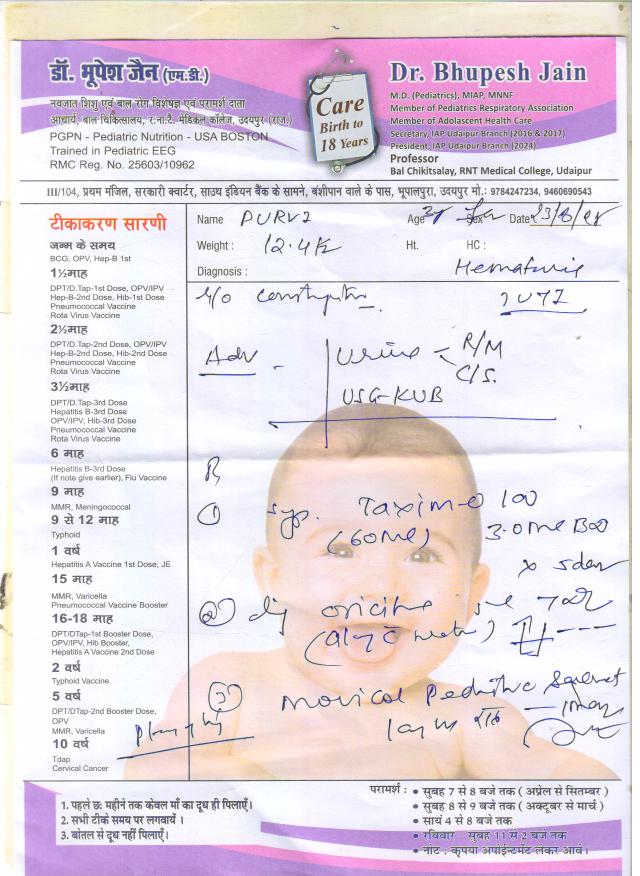 डॉ. भूपेश जैन (एम.डी.)
नवजात शिशु एवं बाल रोग विशेषज्ञ एवं परामर्श दाता
आचार्य, बाल चिकित्सालय, र.ना.टै. मेडिकल कॉलेज, उदयपुर (राज.)
PGPN - Pediatric Nutrition - USA BOSTON
Trained in Pediatric EEG
RMC Reg. No. 25603/10962
Care
Birth to
18 Years
Dr. Bhupesh Jain
M.D. (Pediatrics), MIAP, MNNF
Member of Pediatrics Respiratory Association
Member of Adolascent Health Care
Secretary, IAP Udaipur Branch (2016 & 2017)
President, IAP Udaipur Branch (2024)
Professor
Bal Chikitsalay, RNT Medical College, Udaipur
III/104, प्रथम मंजिल, सरकारी क्वार्टर, साउथ इंडियन बैंक के सामने, बंशीपान वाले के पास, भूपालपुरा, उदयपुर मो.: 9784247234, 9460690543
टीकाकरण सारणी
जन्म के समय
BCG, OPV, Hep-B 1st
1½माह
DPT/D.Tap-1st Dose, OPV/IPV
Hep-B-2nd Dose, Hib-1st Dose
Pneumococcal Vaccine
Rota Virus Vaccine
2½माह
DPT/D.Tap-2nd Dose, OPV/IPV
Hep-B-2nd Dose, Hib-2nd Dose
Pneumococcal Vaccine
Rota Virus Vaccine
3½माह
DPT/D.Tap-3rd Dose
Hepatitis B-3rd Dose
OPV/IPV, Hib-3rd Dose
Pneumococcal Vaccine
Rota Virus Vaccine
6 माह
Hepatitis B-3rd Dose
(If note give earlier), Flu Vaccine
9 माह
MMR, Meningococcal
9 से 12 माह
Typhoid
1 वर्ष
Hepatitis A Vaccine 1st Dose, JE
15 माह
MMR, Varicella
Pneumococcal Vaccine Booster
16-18 माह
DPT/DTap-1st Booster Dose,
OPV/IPV, Hib Booster,
Hepatitis A Vaccine 2nd Dose
2 वर्ष
Typhoid Vaccine
5 वर्ष
DPT/DTap-2nd Booster Dose,
OPV
MMR, Varicella
10 वर्ष
Tdap
Cervical Cancer
Name PURVI Age Sex Date
Weight : 12.4 K Ht. HC :
Diagnosis : Hematuria
? UTI
Adv - Urine - R/M
C/S.
USG-KUB
① syp. Taxim-O 100
(60 ml) 3.0 ml BD
x 5 days
②
③ Movicol Pediatric
1. पहले छः महीने तक केवल माँ का दूध ही पिलाएँ।
2. सभी टीके समय पर लगवायें ।
3. बोतल से दूध नहीं पिलाएँ।
परामर्श : • सुबह 7 से 8 बजे तक ( अप्रेल से सितम्बर )
• सुबह 8 से 9 बजे तक ( अक्टूबर से मार्च )
• सायं 4 से 8 बजे तक
• रविवार - सुबह 11 से 2 बजे तक
• नोट : कृपया अपॉईन्टमेंट लेकर आवें।